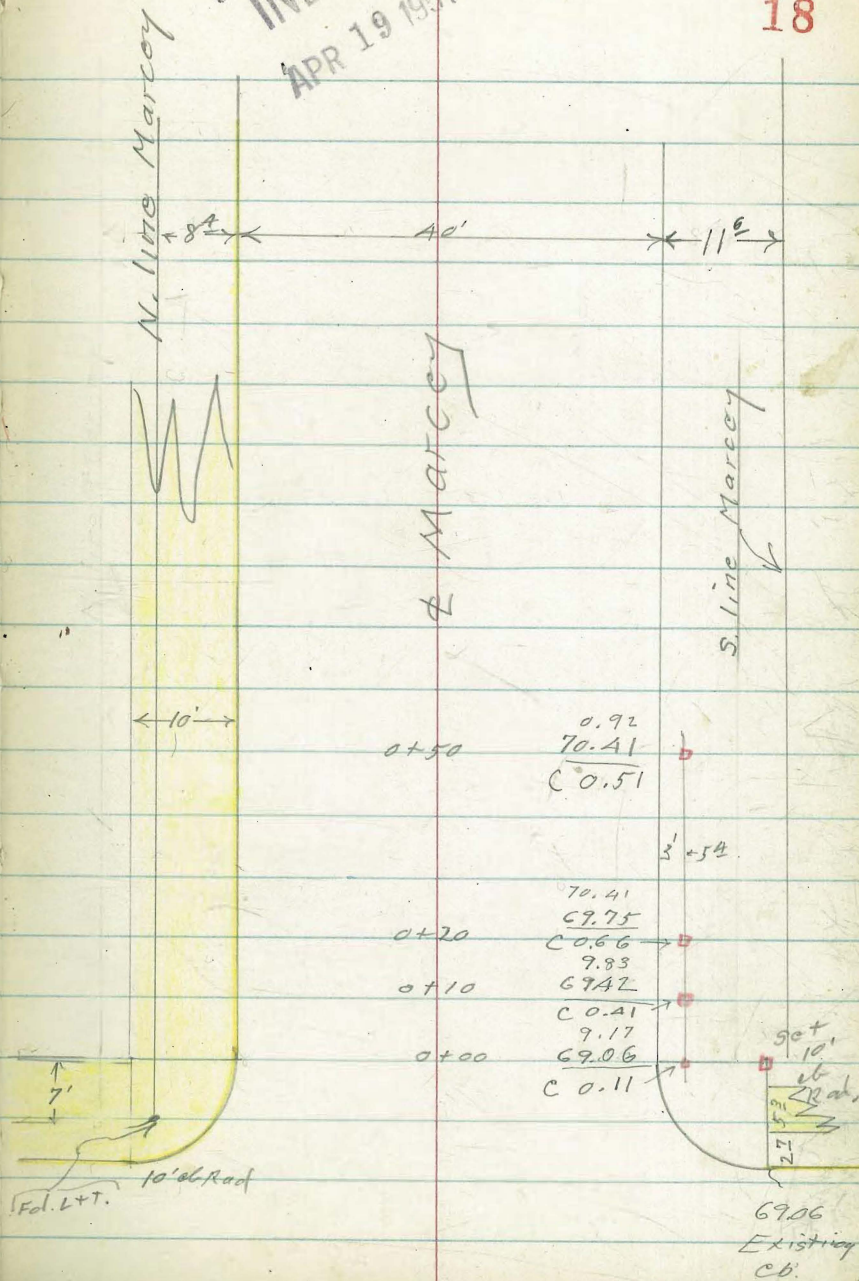 18
APR 19 195
N. line Marcoy
8 4
40'
11 6
℄ Marcoy
S. line Marcoy
10'
0+50
0.92
70.41
C 0.51
3'
5 4
0+20
70.41
69.75
C 0.66
0+10
9.83
69.42
C 0.41
0+00
9.17
69.06
C 0.11
Set
10'
cb
Rad.
7'
5 3
2.7
10' cb Rad
Fd. L+T.
69.06
Existing
cb